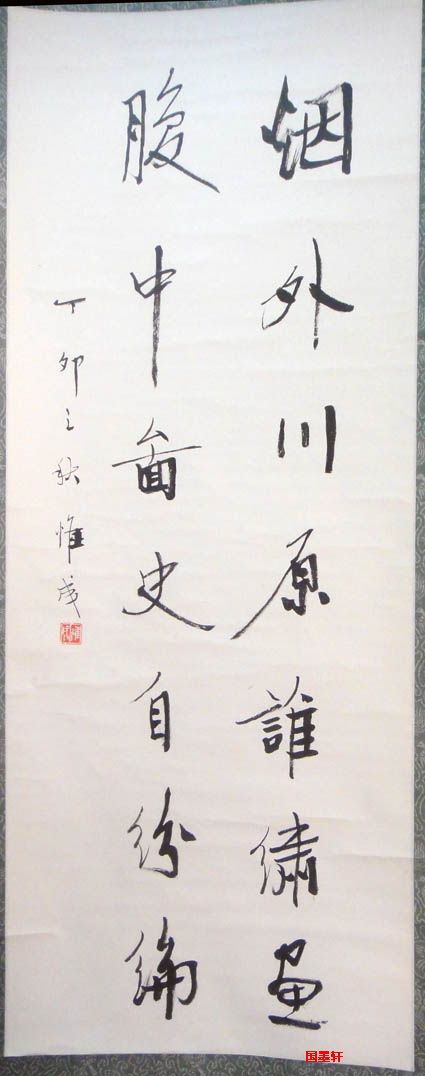 烟外川原誰繡畫
腹中啚史自紛綸
丁卯之秋惟成
国墨轩